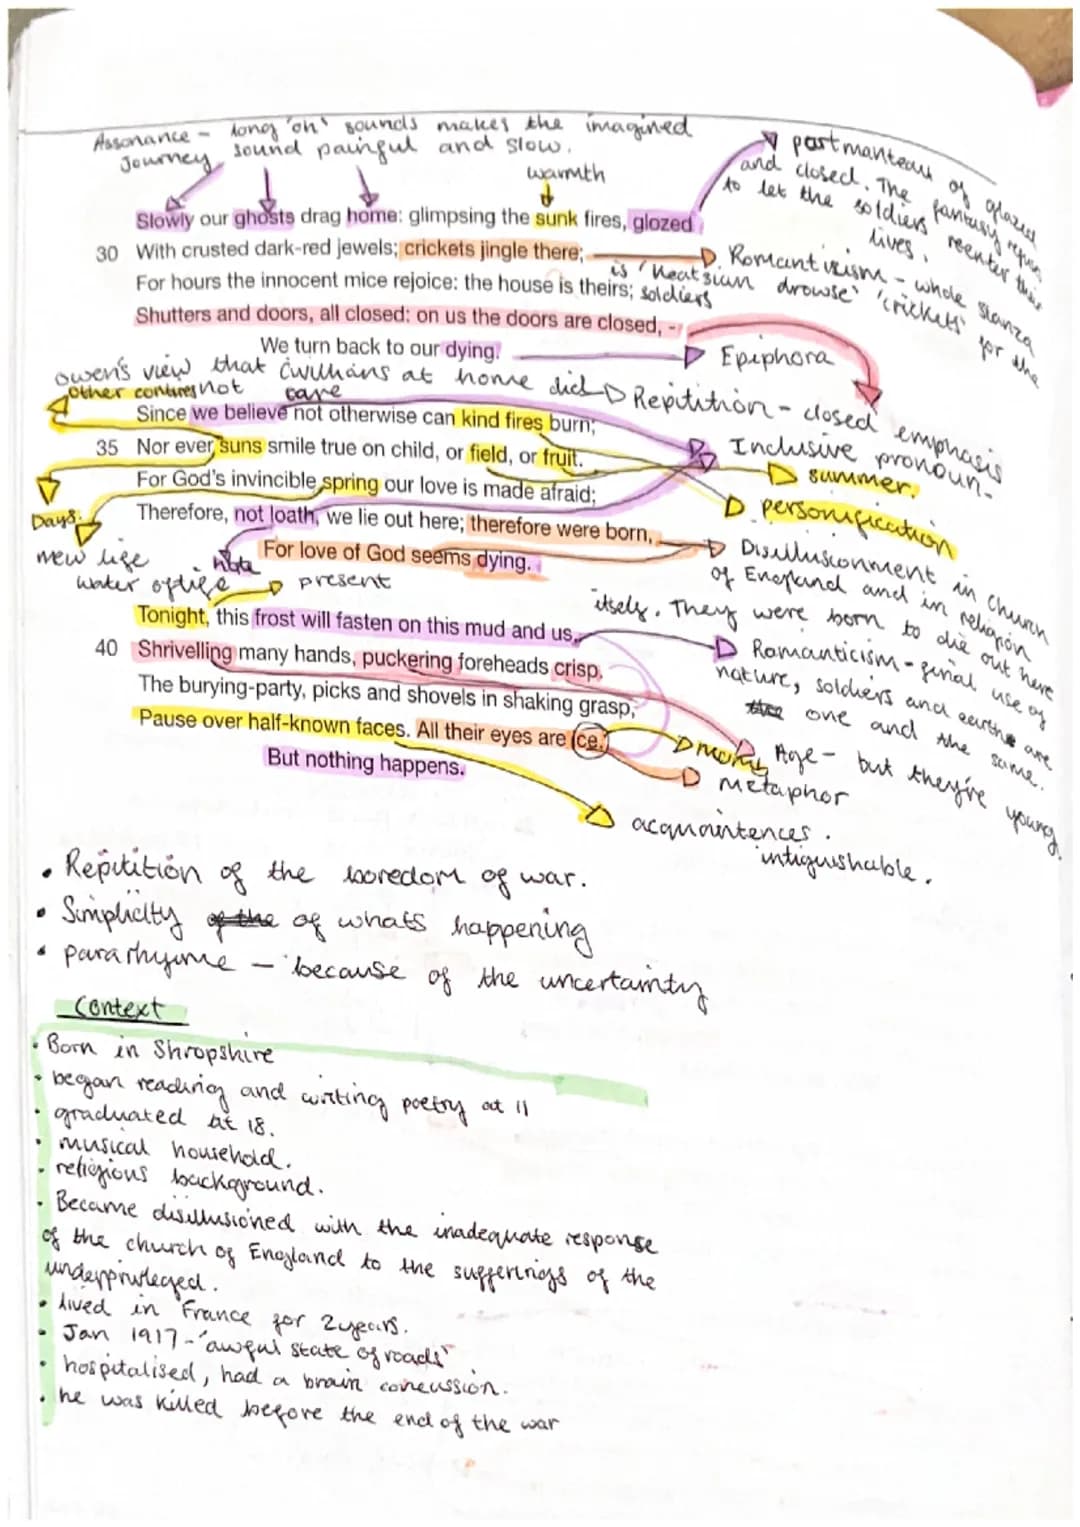 Assonance - long 'oh' sounds makes the imagined
Journey sound painful and slow.
warmth
portmanteau of glazed
and closed. The fantasy
to let the soldiers reenter their
lives.
Slowly our ghosts drag home: glimpsing the sunk fires, glozed
30 With crusted dark-red jewels; crickets jingle there;
Romanticism - whole stanza
is 'Keatsian drowse' 'crickets' for the
soldiers
For hours the innocent mice rejoice: the house is theirs;
Shutters and doors, all closed: on us the doors are closed, -
We turn back to our dying.
Epiphora
Owen's view that civilians at home did
not care
other
Repitition - closed emphasis
Since we believe not otherwise can kind fires burn;
Inclusive pronoun.
35 Nor ever suns smile true on child, or field, or fruit.
summer.
For God's invincible spring our love is made afraid;
personification
Days.
Therefore, not loath, we lie out here; therefore were born,
new life
For love of God seems dying.
Disillusionment in Church
of England and in religion
itself. They were born to die out here
hate
water of life
present
Tonight, this frost will fasten on this mud and us,
Romanticism - final use of
nature, soldiers and earth are
one and the same.
40 Shrivelling many hands, puckering foreheads crisp.
The burying-party, picks and shovels in shaking grasp,
Age - but they're young.
Pause over half-known faces. All their eyes are ice,
metaphor
But nothing happens.
acquaintences.
intiguishable.
• Repitition of the boredom of war.
• Simplicity of the of whats happening
• pararhyme - because of the uncertainty
Context
• Born in Shropshire
• began reading and writing poetry at 11
• graduated at 18.
• musical household.
• religious background.
• Became disillusioned with the inadequate response
of the church of England to the sufferings of the
underprivileged.
• lived in France for 2 years.
• Jan 1917 - 'awful state of roads'
• hospitalised, had a brain concussion.
• he was killed before the end of the war